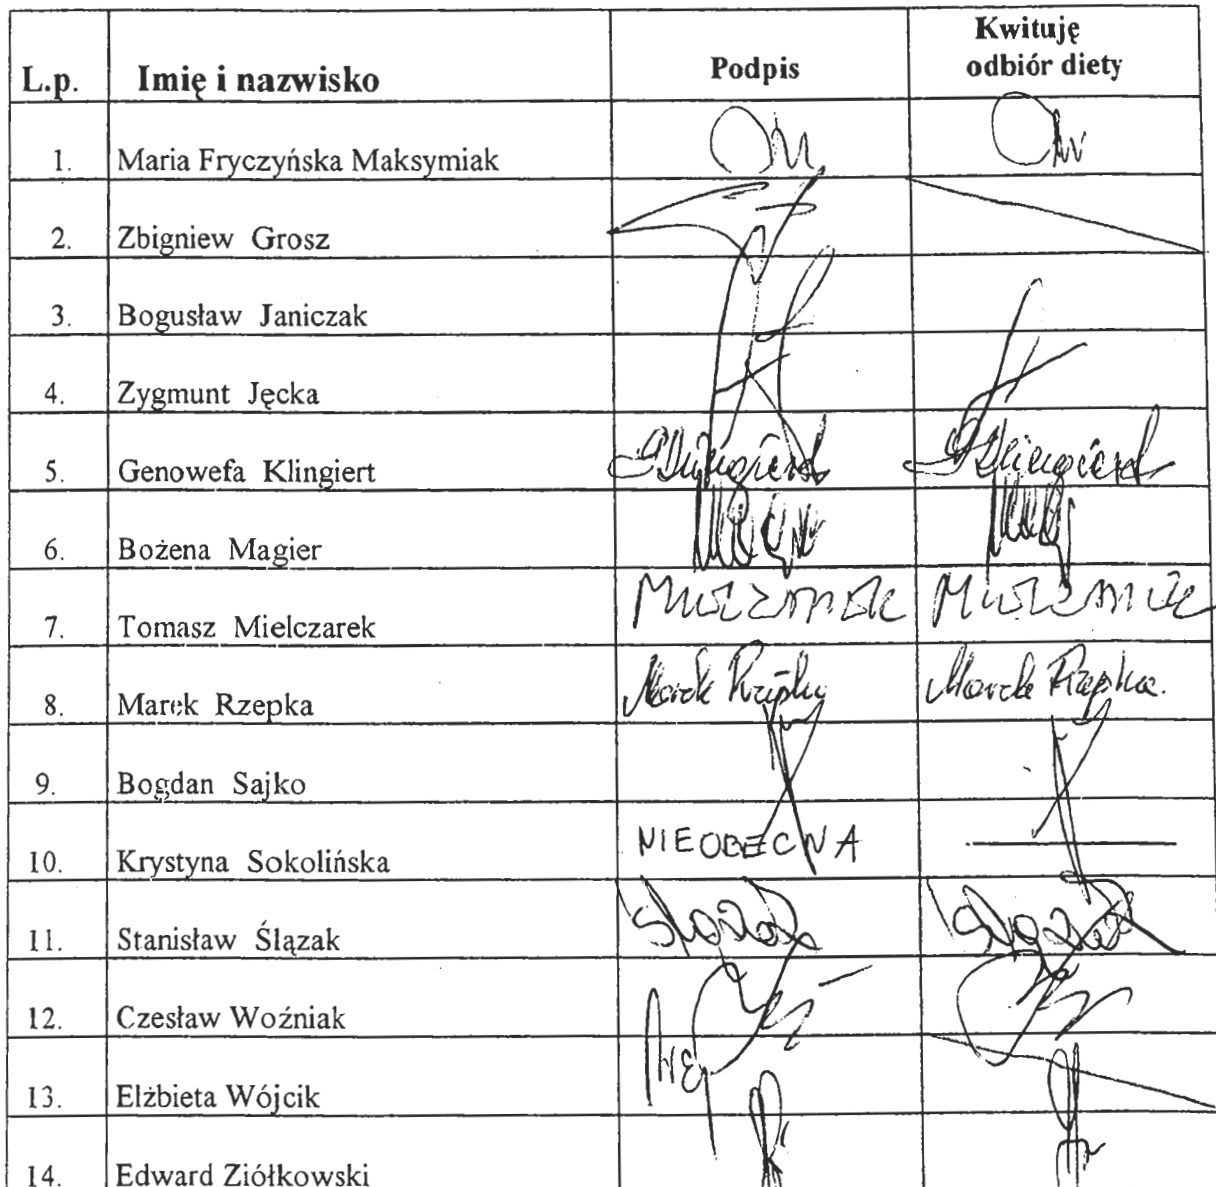 L.p. Imię i nazwisko Podpis Kwituję odbiór diety
1. Maria Fryczyńska Maksymiak
2. Zbigniew Grosz
3. Bogusław Janiczak
4. Zygmunt Jęcka
5. Genowefa Klingiert
6. Bożena Magier
7. Tomasz Mielczarek
8. Marek Rzepka Marek Rzepka Marek Rzepka
9. Bogdan Sajko
10. Krystyna Sokolińska NIEOBECNA
11. Stanisław Ślązak
12. Czesław Woźniak
13. Elżbieta Wójcik
14. Edward Ziółkowski